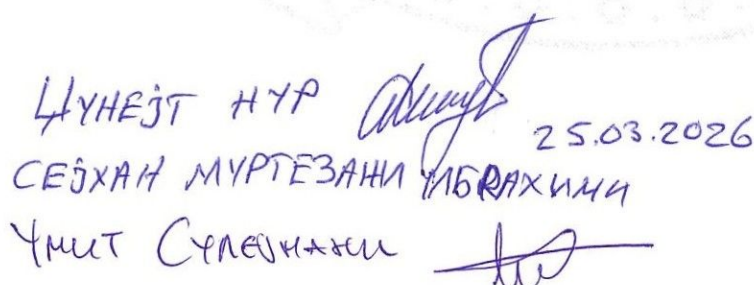 ЏУНЕЈТ НУР
25.03.2026
СЕЈХАН МУРТЕЗАНИ ИБRАХИМИ
Умит Сулејмани